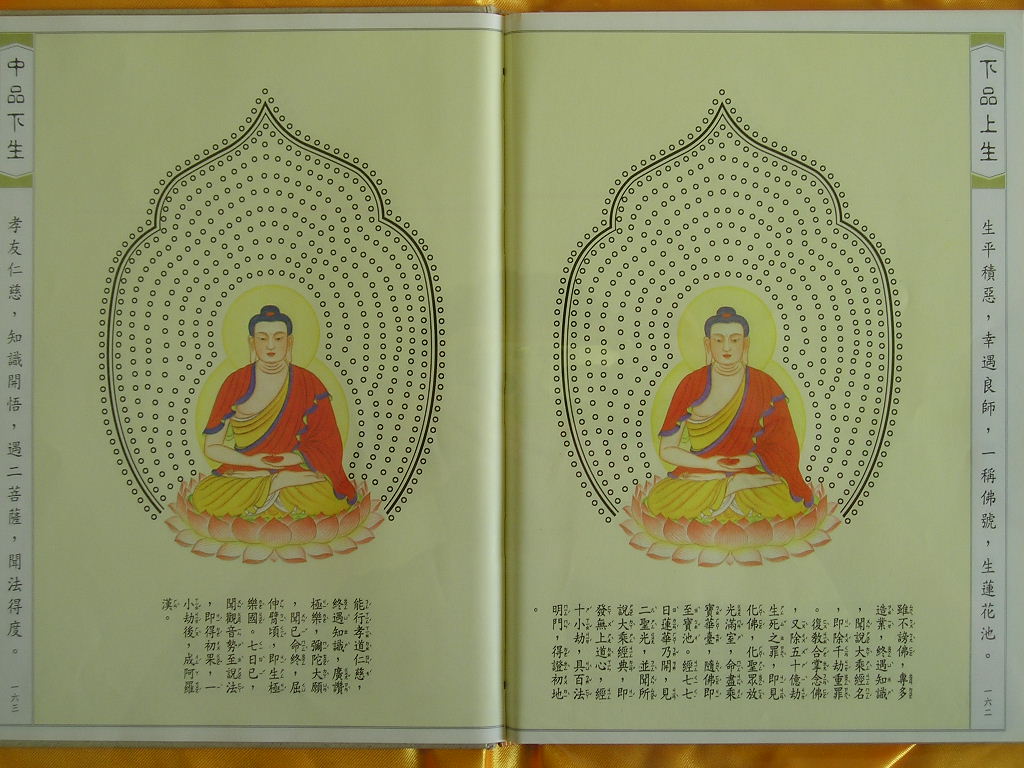 下品上生
生平積惡，幸遇良師，一稱佛號，生蓮花池。
一六二
雖不謗佛，專多
造業，終遇知識
，聞說大乘經名
，即除千劫重罪
。復教合掌念佛
，又除五十億劫
生死之罪，即見
化佛，化聖眾放
光滿室，命盡乘
寶華臺，隨佛即
至寶池。經七七
日蓮華乃開，見
二聖光，並聞所
說大乘經典，即
發無上道心，經
十小劫，具百法
明門，得證初地
。
中品下生
孝友仁慈，知識開悟，遇二菩薩，聞法得度。
一六三
能行孝道仁慈，
終遇知識，廣讚
極樂，彌陀大願
，聞已命終，屈
伸臂頃，即生極
樂國。七日已，
聞觀音勢至說法
，即得初果，一
小劫後，成阿羅
漢。